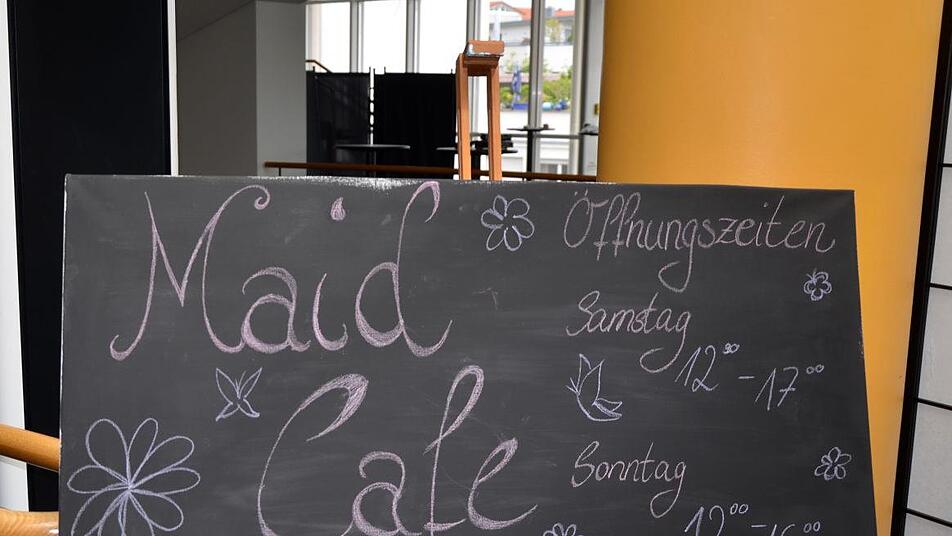 Maid
Cafe
Öffnungszeiten
Samstag
12³⁰ - 17⁰⁰
Sonntag
12⁰⁰ - 16⁰⁰